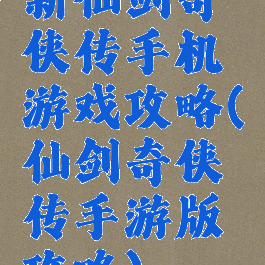 新仙剑奇
侠传手机
游戏攻略(
仙剑奇侠
传手游版
攻略)